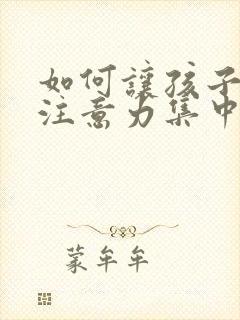 如何讓孩子
注意力集中
蒙牟牟